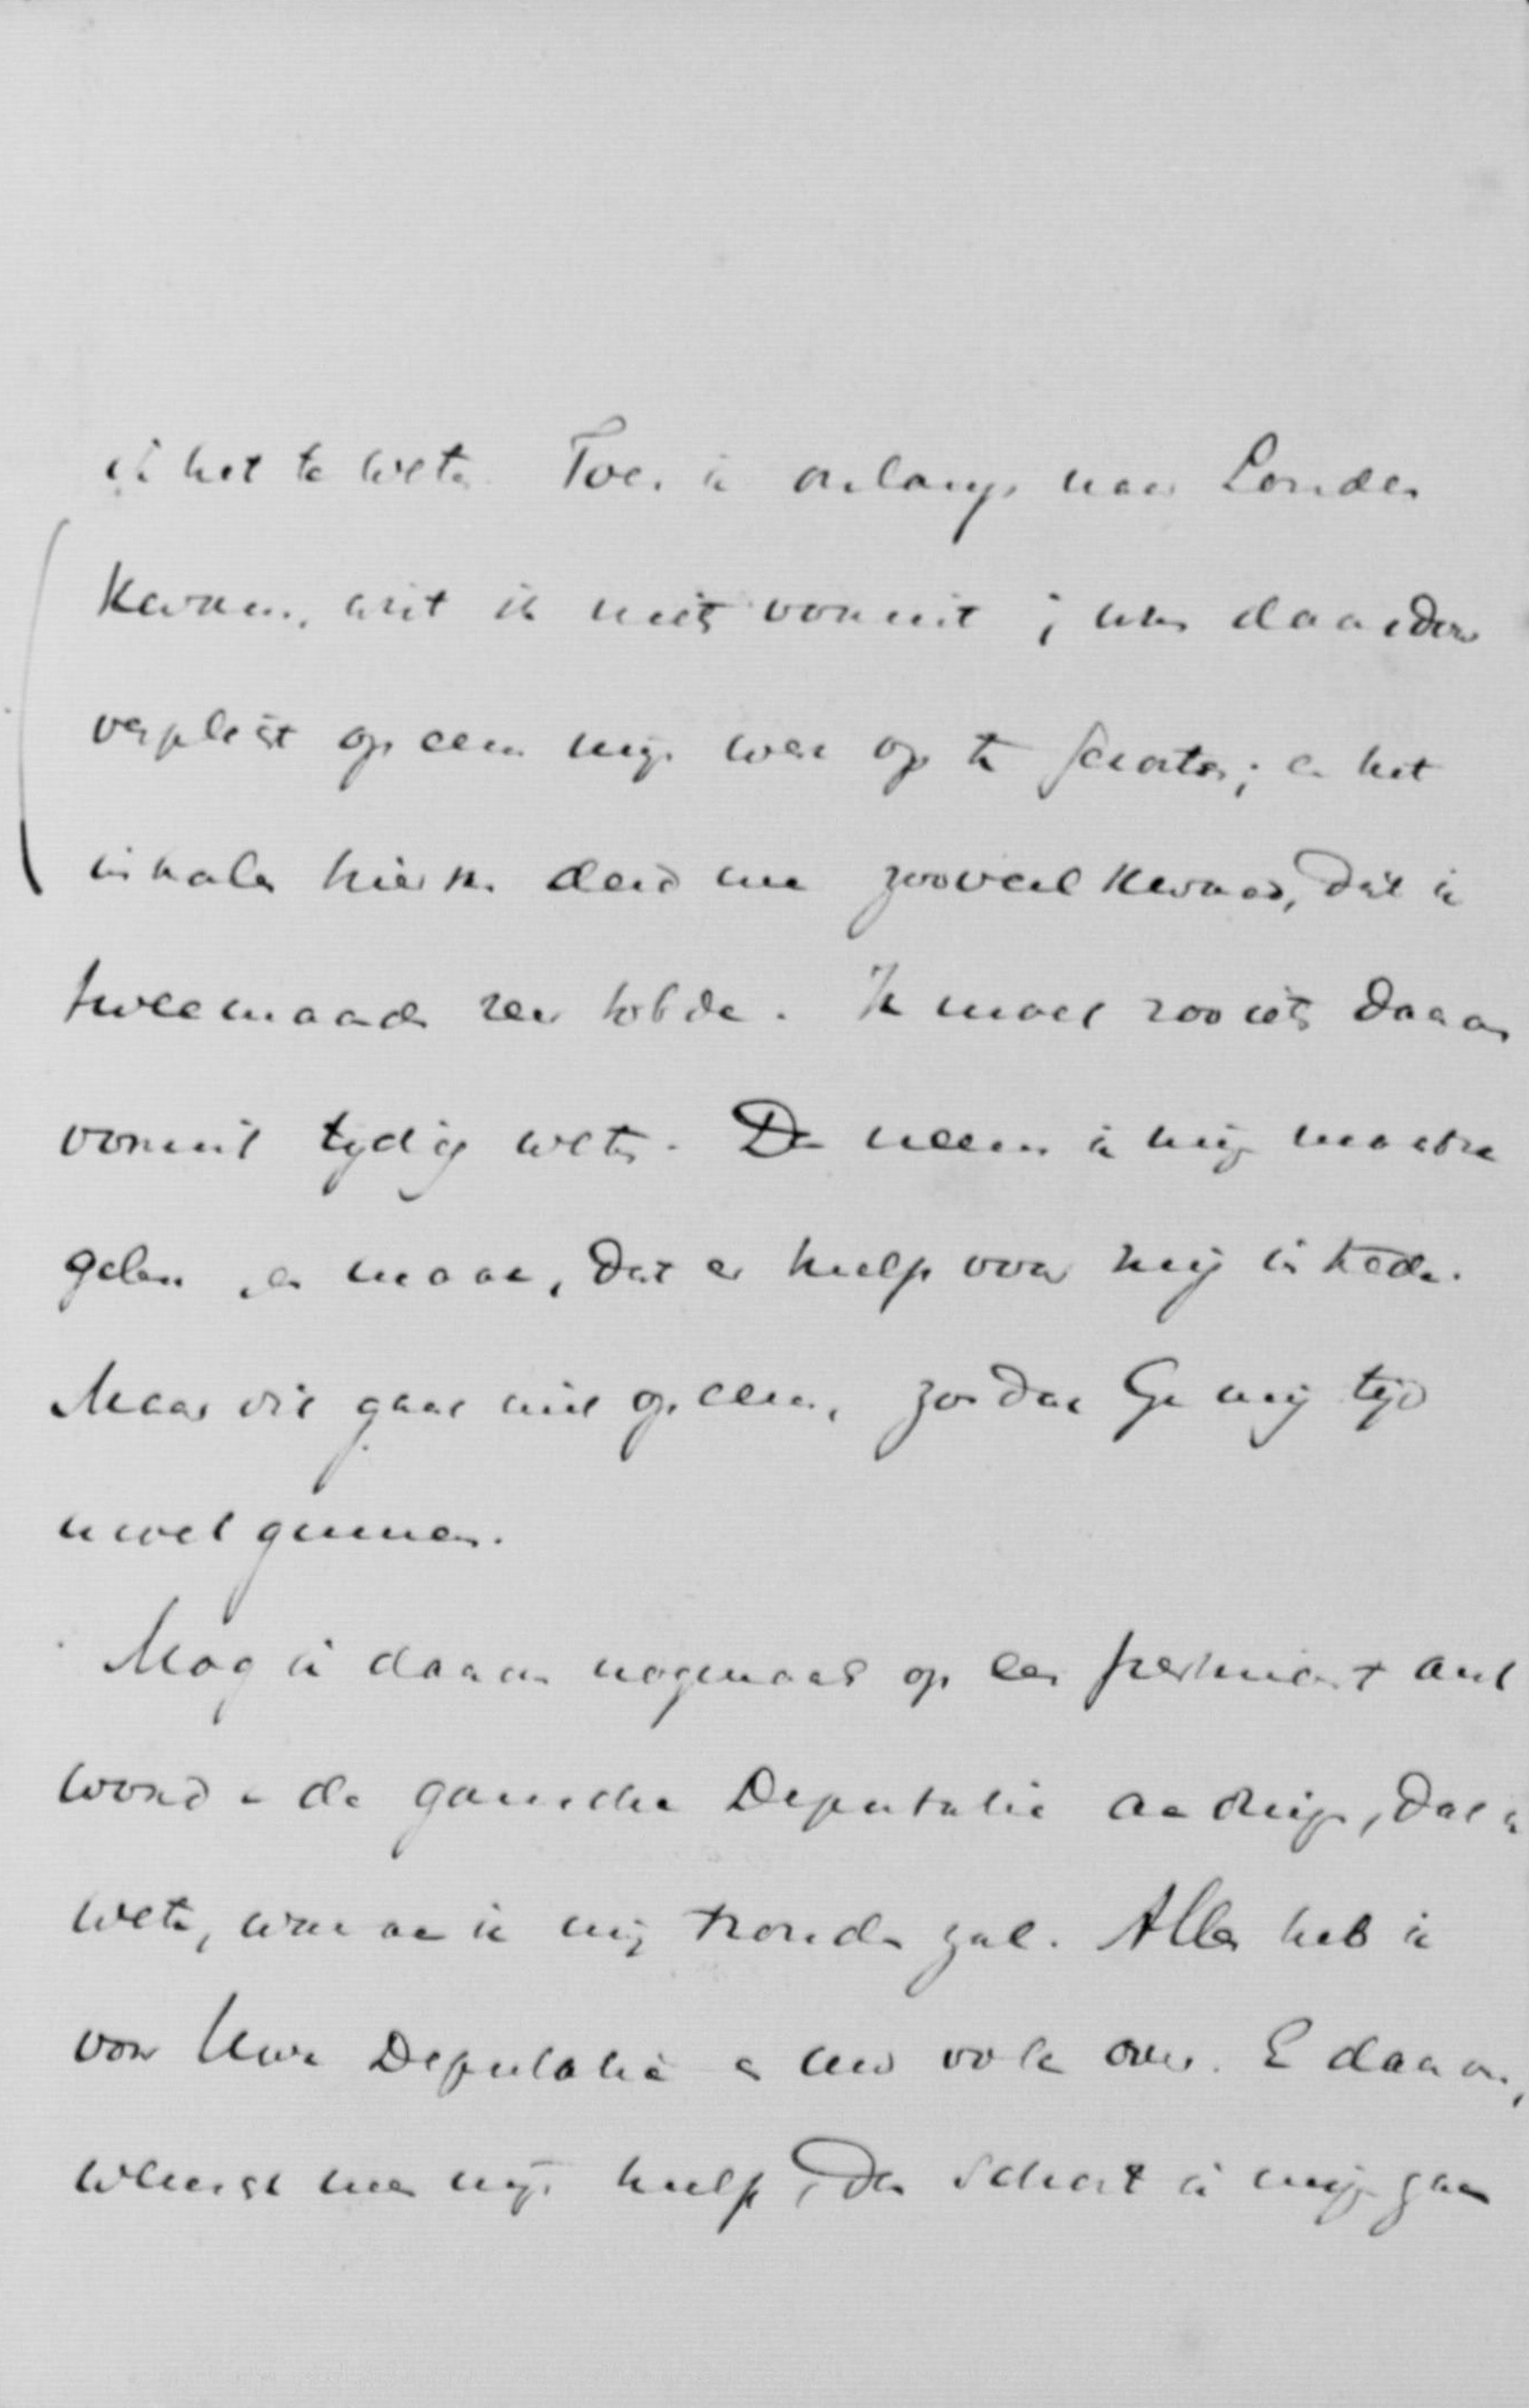 ik het te weten. Toen ik onlangs naar Londen
kwam, wist ik niets vooruit; was daardoor
verplicht opeens mijn werk op te schorten; en het
inhalen hiervan deed me zooveel kwaad, dat ik
twee maanden zeer tobde. Ik moet zoo iets daarom
vooruit tijdig weten. Dan neem ik mijn maatre
gelen en maak, dat er hulp voor mij intrede.
Maar dit gaat niet opeens, zoodat Ge mij tijd
moet gunnen.
Mag ik daarom nogmaals op een pertinent ant
woord van de gansche Deputatie aandringen, dat ik
wete, waaraan ik mij houden zal. Alles heb ik
voor Uwe Deputatie en uw volk over. En daarom,
wenscht men mijn hulp, dan schort ik mijn